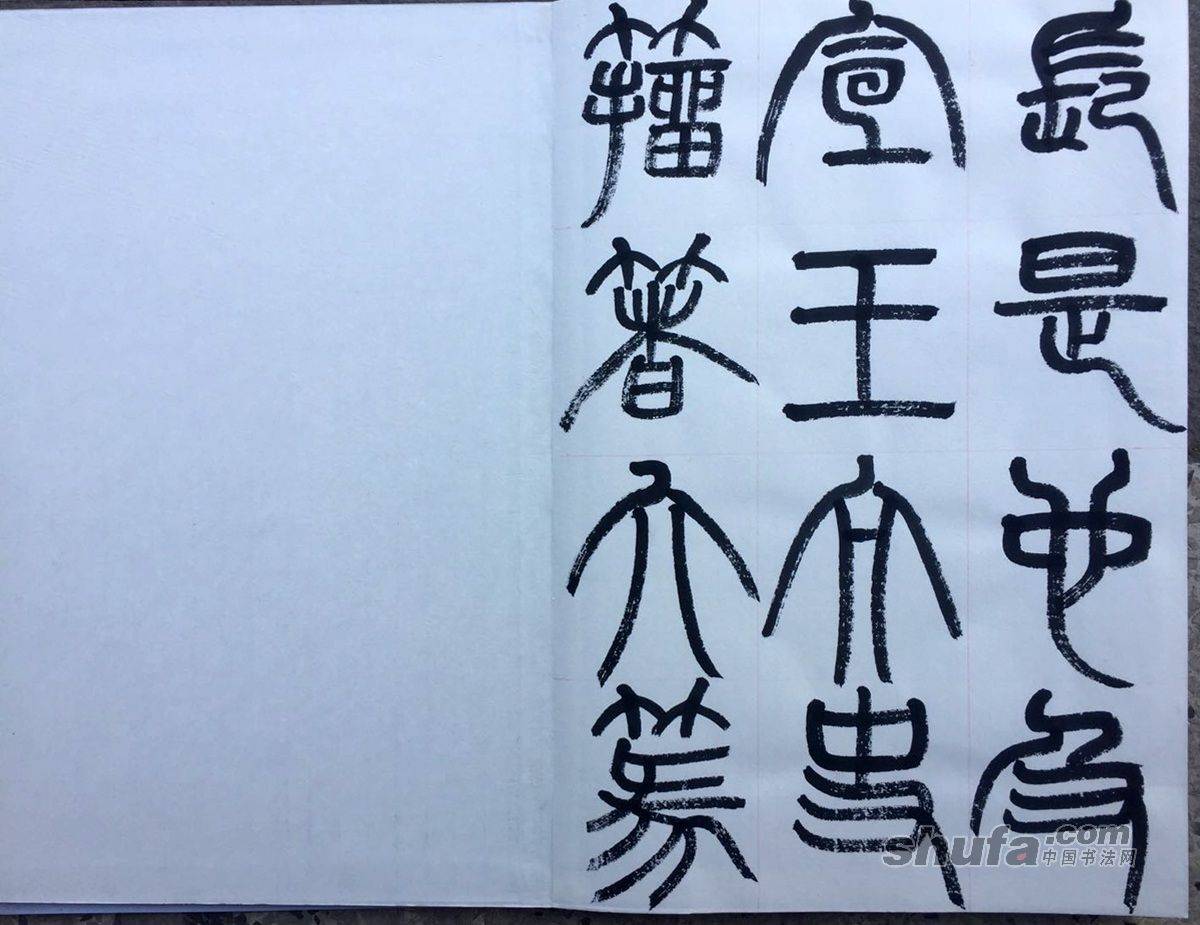 長是也及
宣王太史
籀著大篆
shufa.com
中国书法网